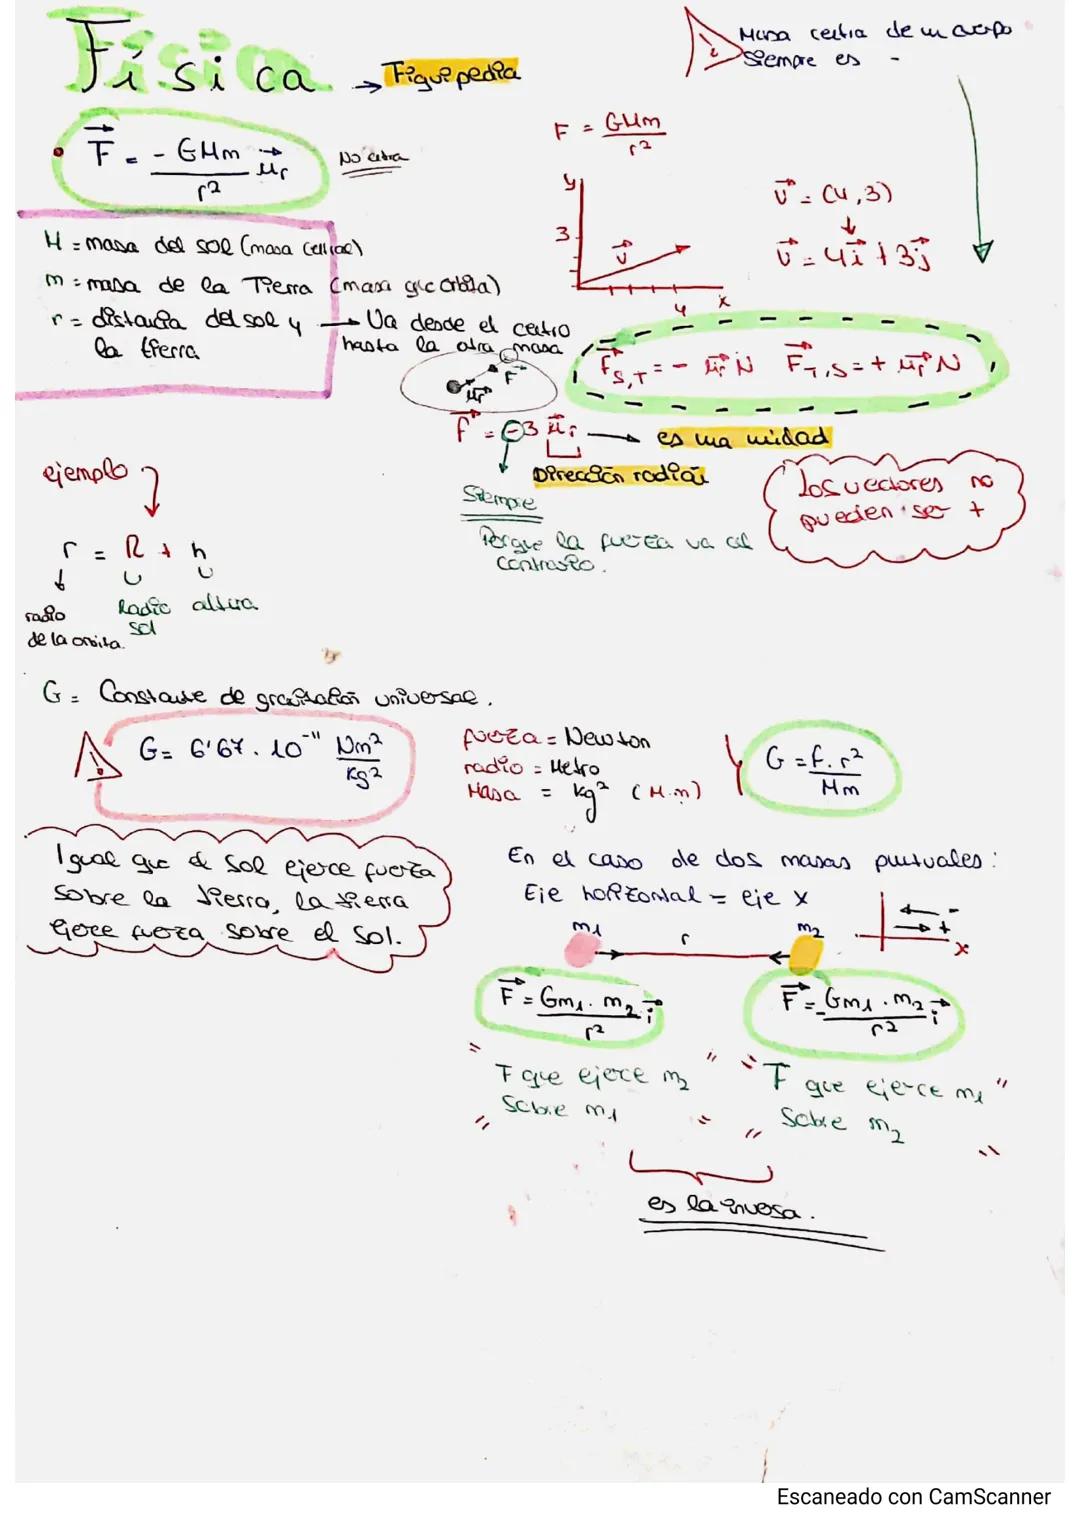 Física → Fiquipedia
Masa central de un cuerpo
siempre es -
F = - GMm/r² ur
No entra
F = GMm/r²
y
3
v
4
x
v = (4,3)
v = 4i + 3j
M = masa del sol (masa central)
m = masa de la Tierra (masa que orbita)
r = distancia del sol y la tierra → Va desde el centro hasta la otra masa
F
ur
F S,T = - ur N F T,S = + ur N
F = -3 ur → es una unidad
Dirección radial
Siempre
Porque la fuerza va al
contrario.
Los vectores no
pueden ser +
ejemplo
r = R + h
radio
de la orbita.
Radio
sol
altura
G = Constante de gravitación universal.
G = 6'67 . 10⁻¹¹ Nm²/kg²
fuerza = Newton
radio = Metro
Masa = kg² (M.m)
G = f. r²/Mm
Igual que el sol ejerce fuerza
sobre la tierra, la tierra
ejerce fuerza sobre el sol.
En el caso de dos masas puntuales:
Eje horizontal = eje x
m1 r m2
- + x
F = Gm1 . m2/r² i
F = - Gm1 . m2/r² i
" F que ejerce m2 "
" Sobre m1 "
" F que ejerce m1 "
" Sobre m2 "
es la inversa.
Escaneado con CamScanner